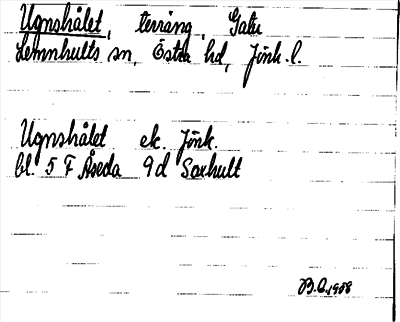 Ugnshålet, terräng,
Lemnhults sn, Östra hd, Jönk. l.
Ugnshålet ek. Jönk.
bl. 5 F Åseda 9d Soxhult
1958